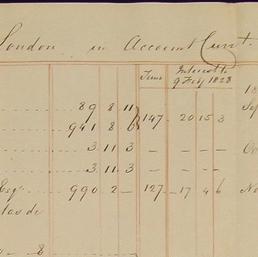 London in Account Curt.
Time Interest to
9 Feby 1828
18
89 8 11
941 8 6 147 - 20 15 3
3 11 3
3 11 3
Esqr 990 2 - 127 - 17 4 6 No
8